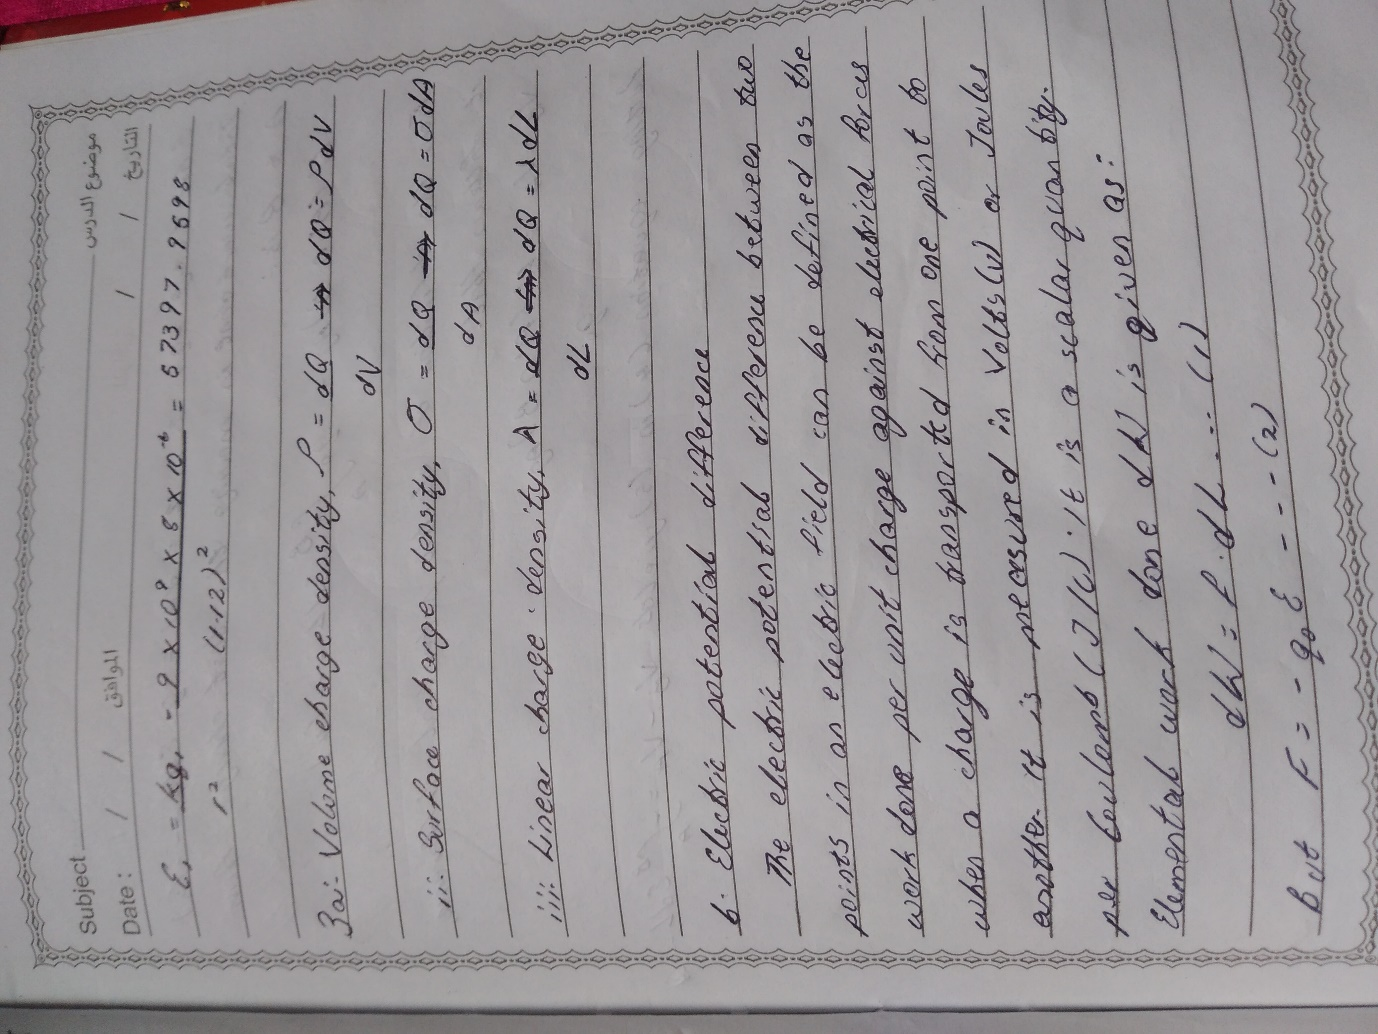 Subject موضوع الدرس
Date : / / الموافق / / التاريخ
E₁ = kq₁ = 9 × 10⁹ × 8 × 10⁻⁶ = 57397.9598
r² (1.12)²
3ai- Volume charge density, ρ = dQ ⇒ dQ = ρdV
dV
ii: Surface charge density, σ = dQ ⇒ dQ = σdA
dA
iii: Linear charge density, λ = dQ ⇒ dQ = λdL
dL
b. Electric potential difference
The electric potential difference between two
points in an electric field can be defined as the
work done per unit charge against electrical forces
when a charge is transported from one point to
another. It is measured in Volts (V) or Joules
per Coulomb (J/C). It is a scalar quantity.
Elemental work done dW is given as:
dW = F . dL ... (1)
But F = - q₀E - - - (2)